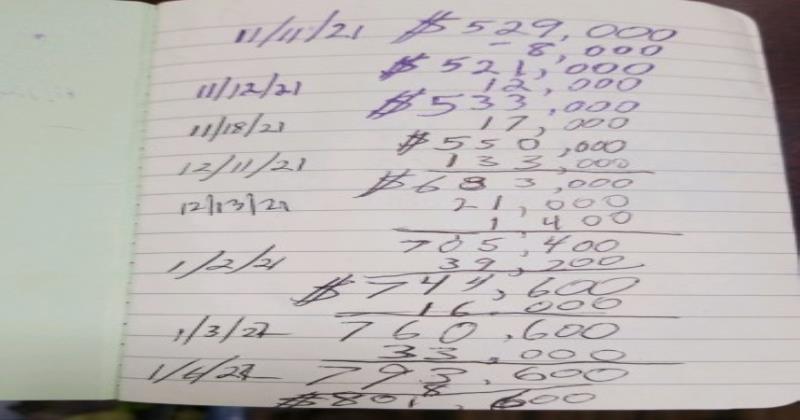 11/11/21 $529,000
-8,000
$521,000
11/12/21 12,000
$533,000
11/18/21 17,000
$550,000
12/11/21 133,000
$683,000
12/13/21 21,000
1,400
705,400
1/2/21 39,200
$744,600
16,000
1/3/22 760,600
33,000
793,600
8
$801,600